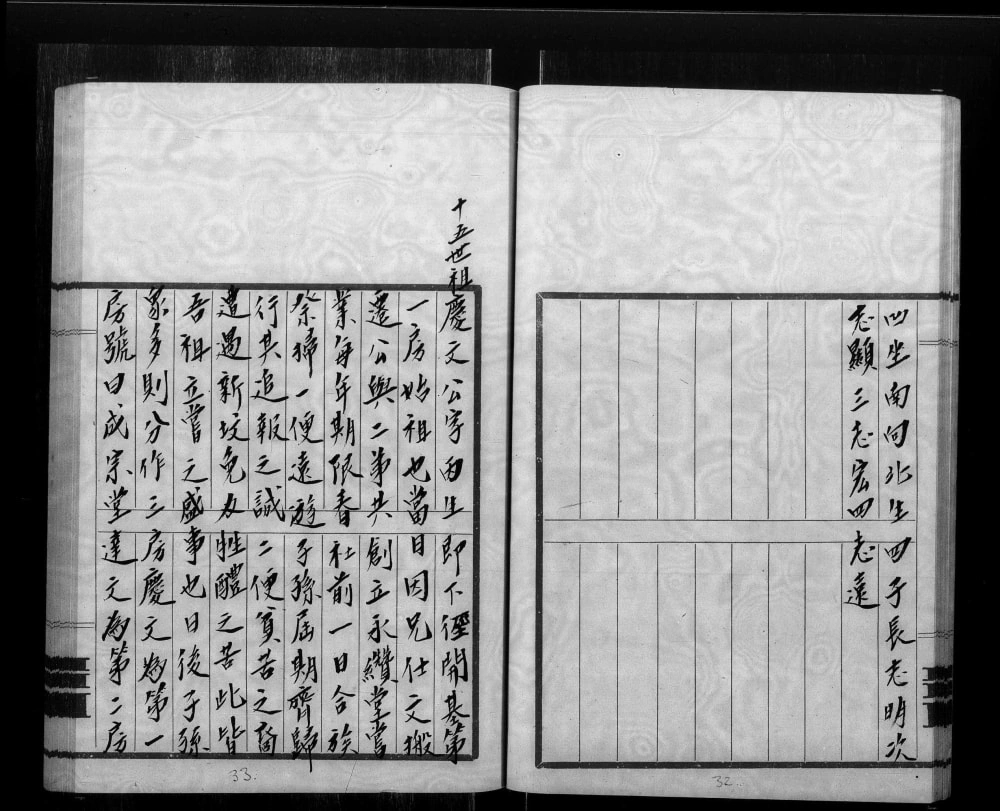 凹坐南向北生四子長志明次
志顯三志宏四志遠
32
十五世祖慶文公字雨生即下徑開基第
一房始祖也當日因兄仕文搬
遷公與二弟共創立永纘堂嘗
業每年期限春社前一日合族
祭掃一便遠遊子孫屆期齊歸
行其追報之誠二便貧苦之裔
遭遇新坟免办牲醴之苦此皆
吾祖立嘗之盛事也日後子孫
衆多則分作三房慶文為第一
房號曰成宗堂達文為第二房
33.